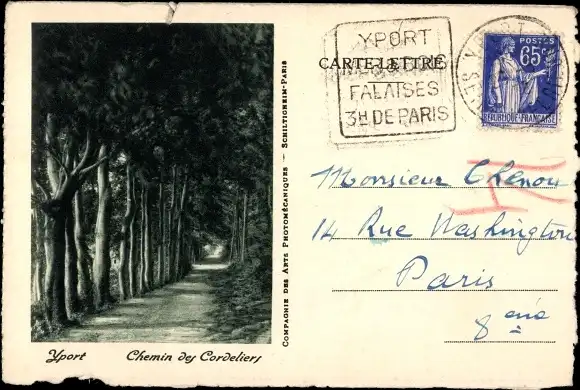 YPORT
FALAISES
3H DE PARIS
CARTE-LETTRE
POSTES
65c
RÉPUBLIQUE FRANÇAISE
COMPAGNIE DES ARTS PHOTOMÉCANIQUES - SCHILTIGHEIM-PARIS
Monsieur Thenon
14 Rue Washington
Paris
8 ème
Yport Chemin des Cordeliers